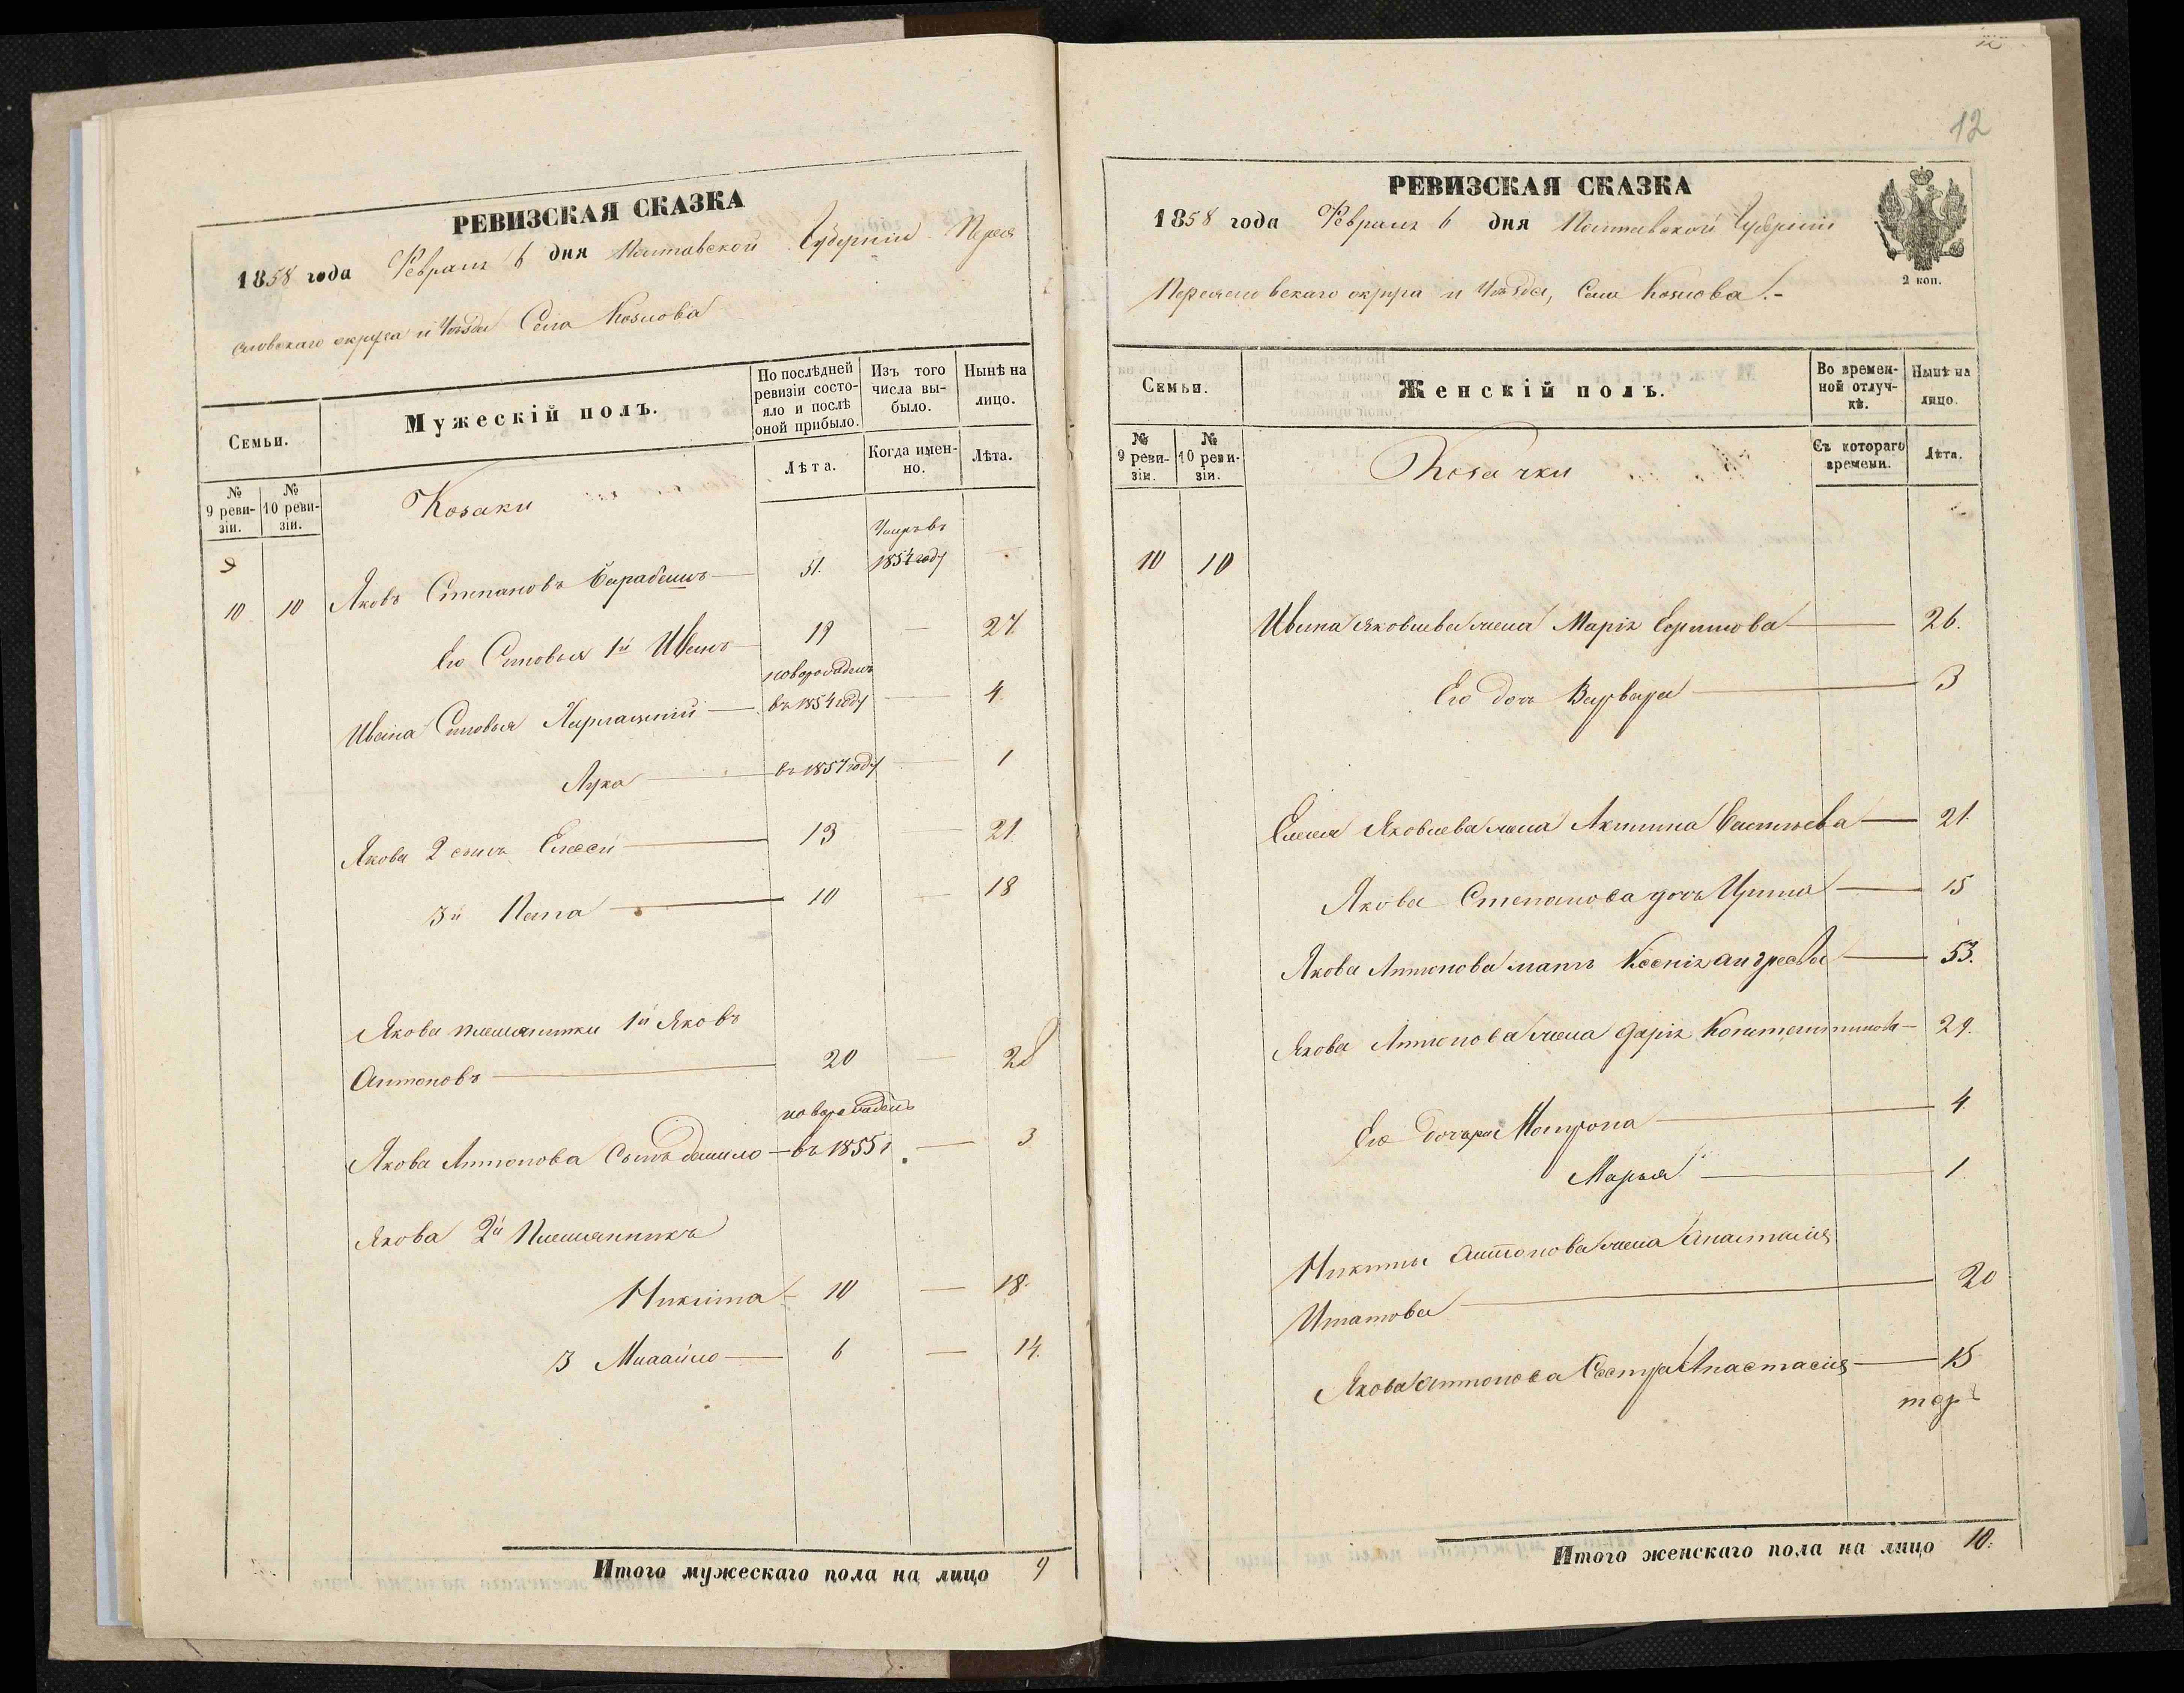 РЕВИЗСКАЯ СКАЗКА
1858 года Февраля 6 дня Полтавской Губернии Перея
словскаго округа и Уѣзда Села Козлова
Семьи.
Мужескій полъ.
По послѣдней ревизіи состояло и послѣ оной прибыло.
Изъ того числа выбыло.
Нынѣ на лицо.
№ 9 ревизіи.
№ 10 ревизіи.
Лѣта.
Когда именно.
Лѣта.
Козаки
9
10 10 Яковъ Степановъ Барабашъ 51. Умеръ въ 1854 году
Его Сыновья 1й Иванъ 19 — 27.
Ивана Сыновья Харлампий новорожденъ въ 1854 году — 4.
Лука въ 1857 году — 1
Якова 2 сынъ Елесей 13 — 21
3й 10 — 18
Якова племянники 1й Яковъ
Антоновъ 20 — 28
Якова Антонова Сынъ Данило новорожденъ въ 1855 г. — 3
Якова 2й Племянникъ
Никита 10 — 18.
3 Михайло 6 — 14.
Итого мужескаго пола на лицо 9
12
РЕВИЗСКАЯ СКАЗКА
1858 года Февраля 6 дня Полтавской Губерніи
2 коп.
Переясловскаго округа и Уѣзда, Села Козлова.-
Семьи.
Женскій полъ.
Во временной отлучкѣ.
Нынѣ на лицо.
№ 9 ревизіи.
№ 10 ревизіи.
Съ котораго времени.
Лѣта.
Козачки
10 10
Ивана Яковлева жена Марія 26.
Его дочь Варвара 3
Елесея Яковлева жена Акилина 21.
Якова Степанова дочь Ирина 15
Якова Антонова мать Ксенія Андреева 53.
Якова Антонова жена Дарія Константинова 29.
Его дочери Мотрона 4
Марья 1.
Никиты Антонова жена Анастасія
Игнатова 20
Якова Антонова Сестра Анастасія 15
Итого женскаго пола на лицо 10.